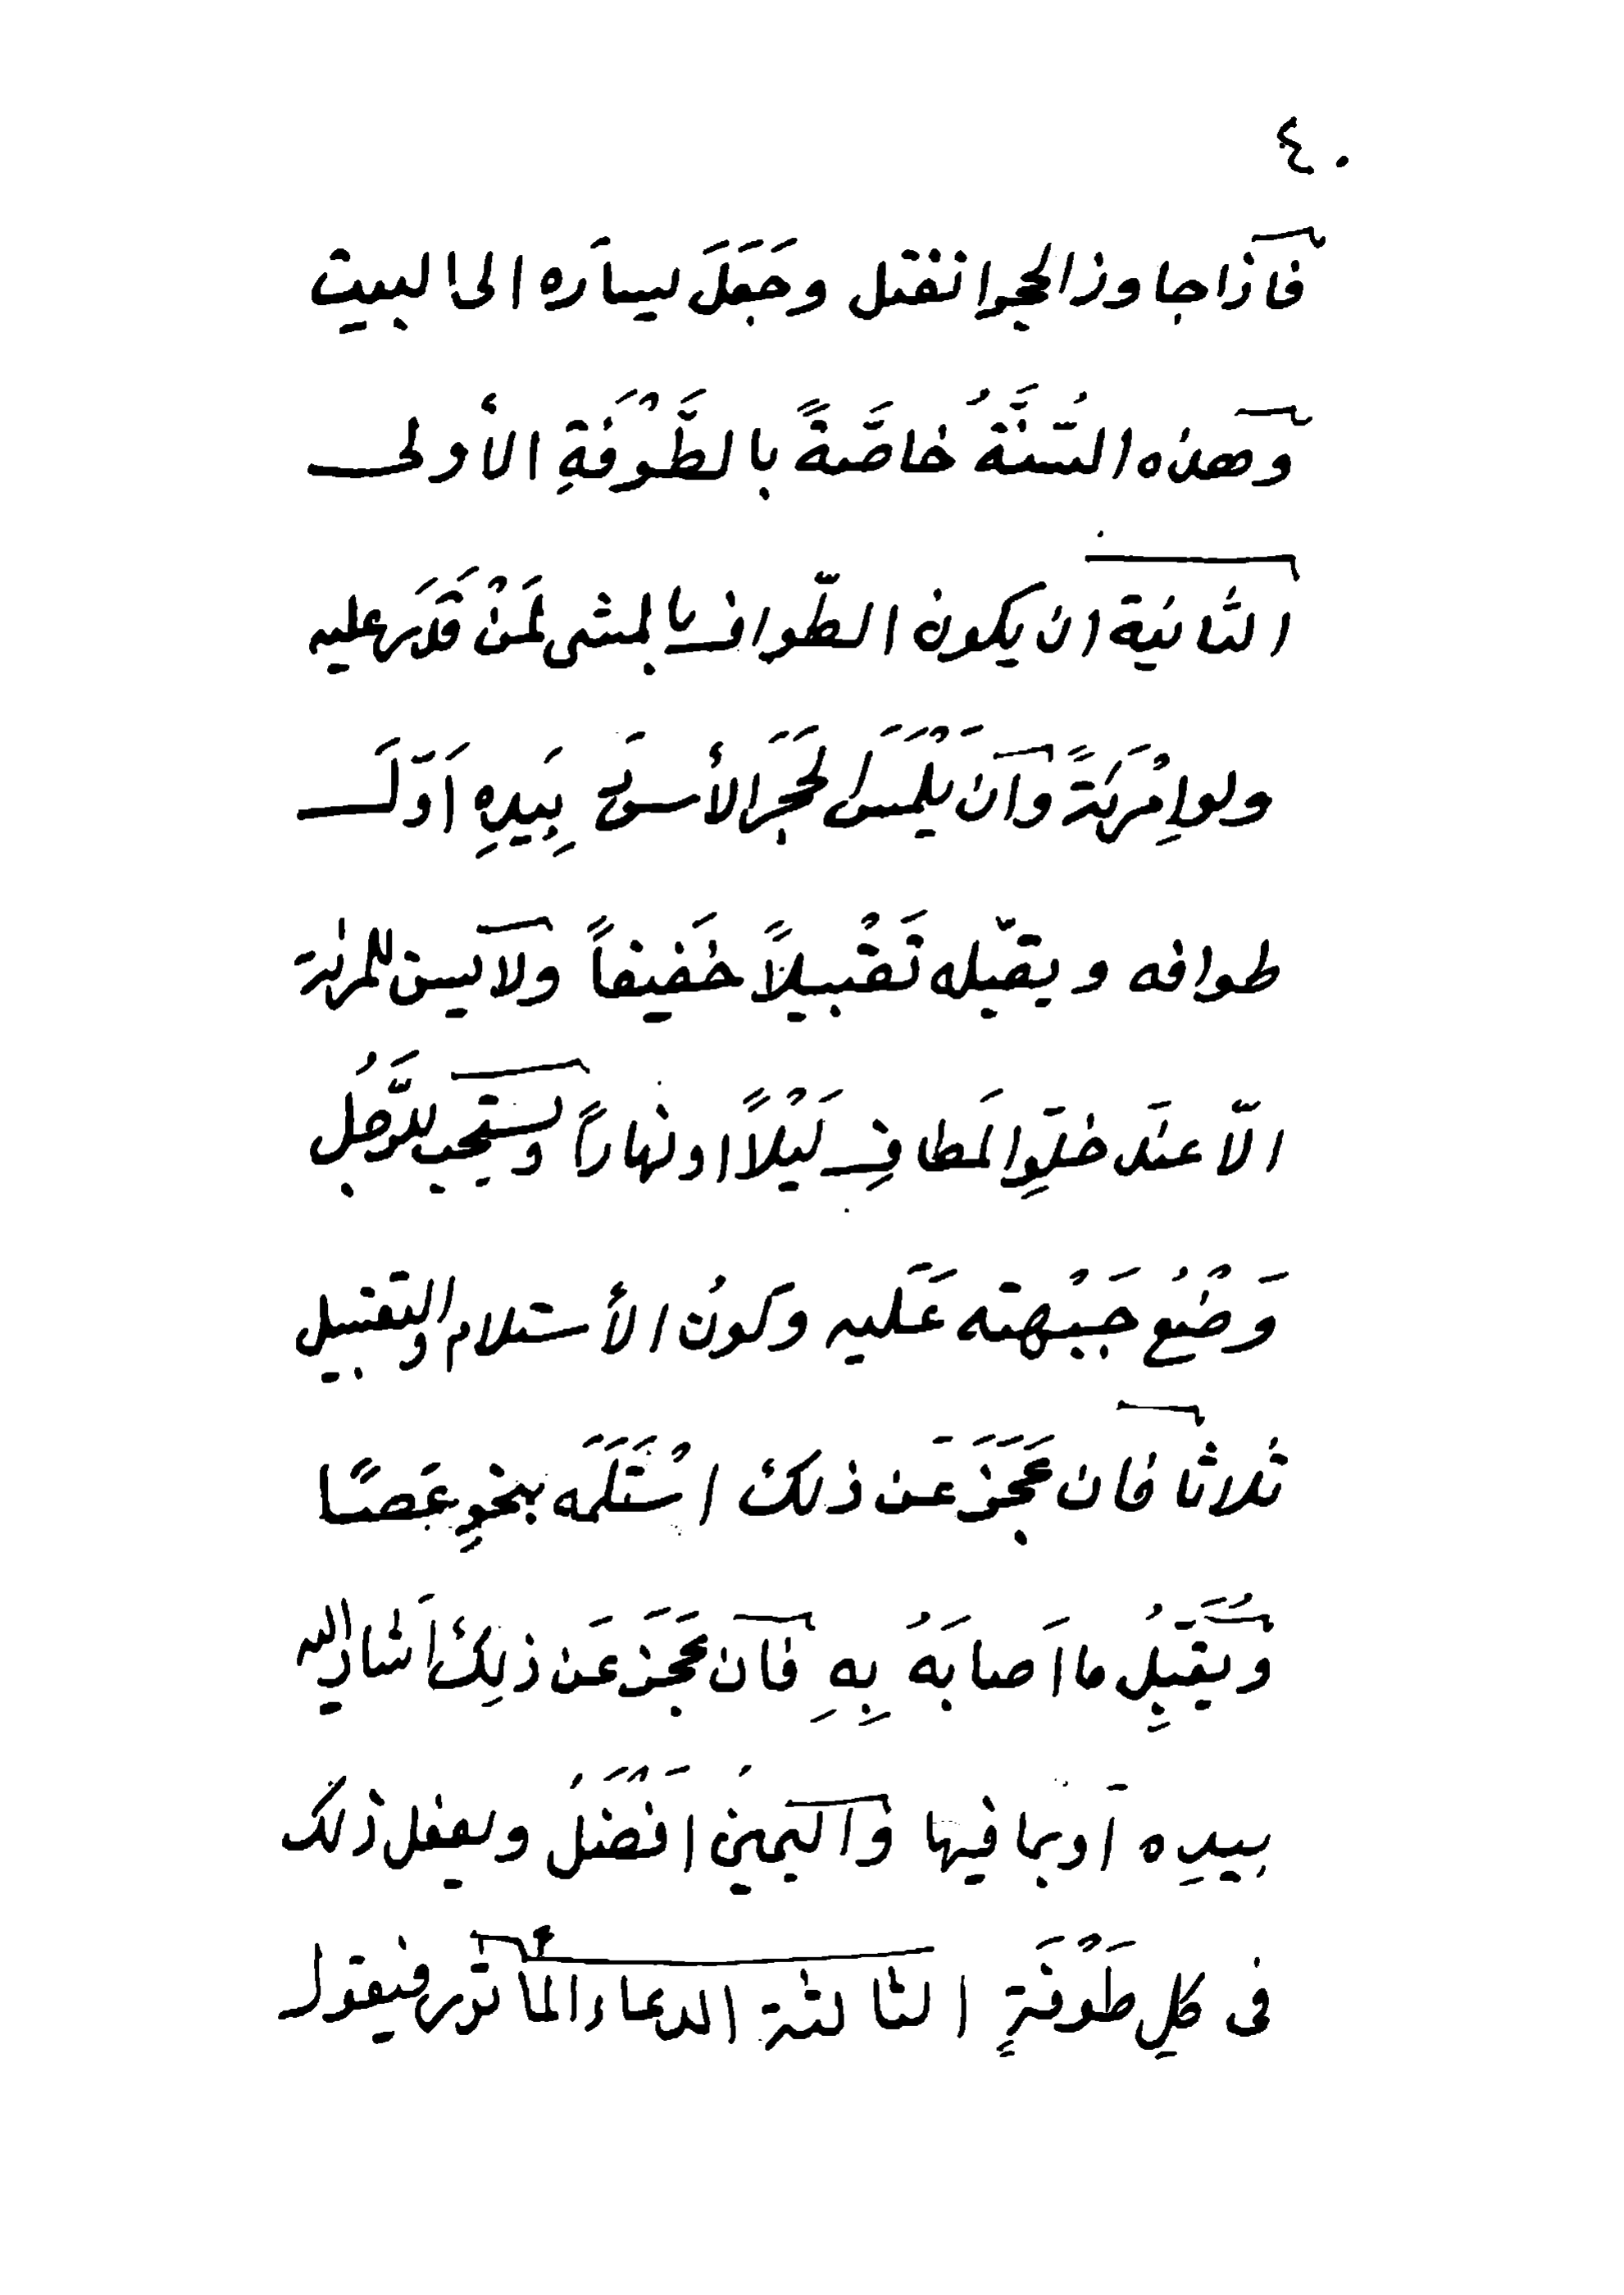 ٤٠
فاذا جاوز الحجر انفتل وجَعَلَ يسارَه الى البيت
وهذه السُّنَّةُ خاصَّةً بالطَّوْفَةِ الأولى
الثانية ان يكون الطّواف بالمشى لمَنْ قَدَر عليه
ولو اِمْرَئَةً وان يَلْمَسَ الحَجَرَ الأسوَد بِيَدِهِ اَوّلَ
طوافه ويقبّله تَقْبيلاً خَفيفاً ولا يسن للمرئة
الّا عند خلوِ المَطافِ لَيْلاً او نهاراً ويستحب للرَّجُل
وَضْع جَبْهته عَلَيه وكونُ الأستلام والتقبيل
ثلاثا فان عَجَزَ عَن ذلك اسْتَلَمَه بنحوِ عَصًا
ويُقَبِلُ ما اَصابَهُ بِهِ فان عَجَزَ عَن ذلِك اَشار اليه
بيدِه اَو بما فيها واليمينُ افْضَلُ ويفعل ذلك
فى كلِ طَوْفَةٍ الثالثة الدعاء المأثور فيقول